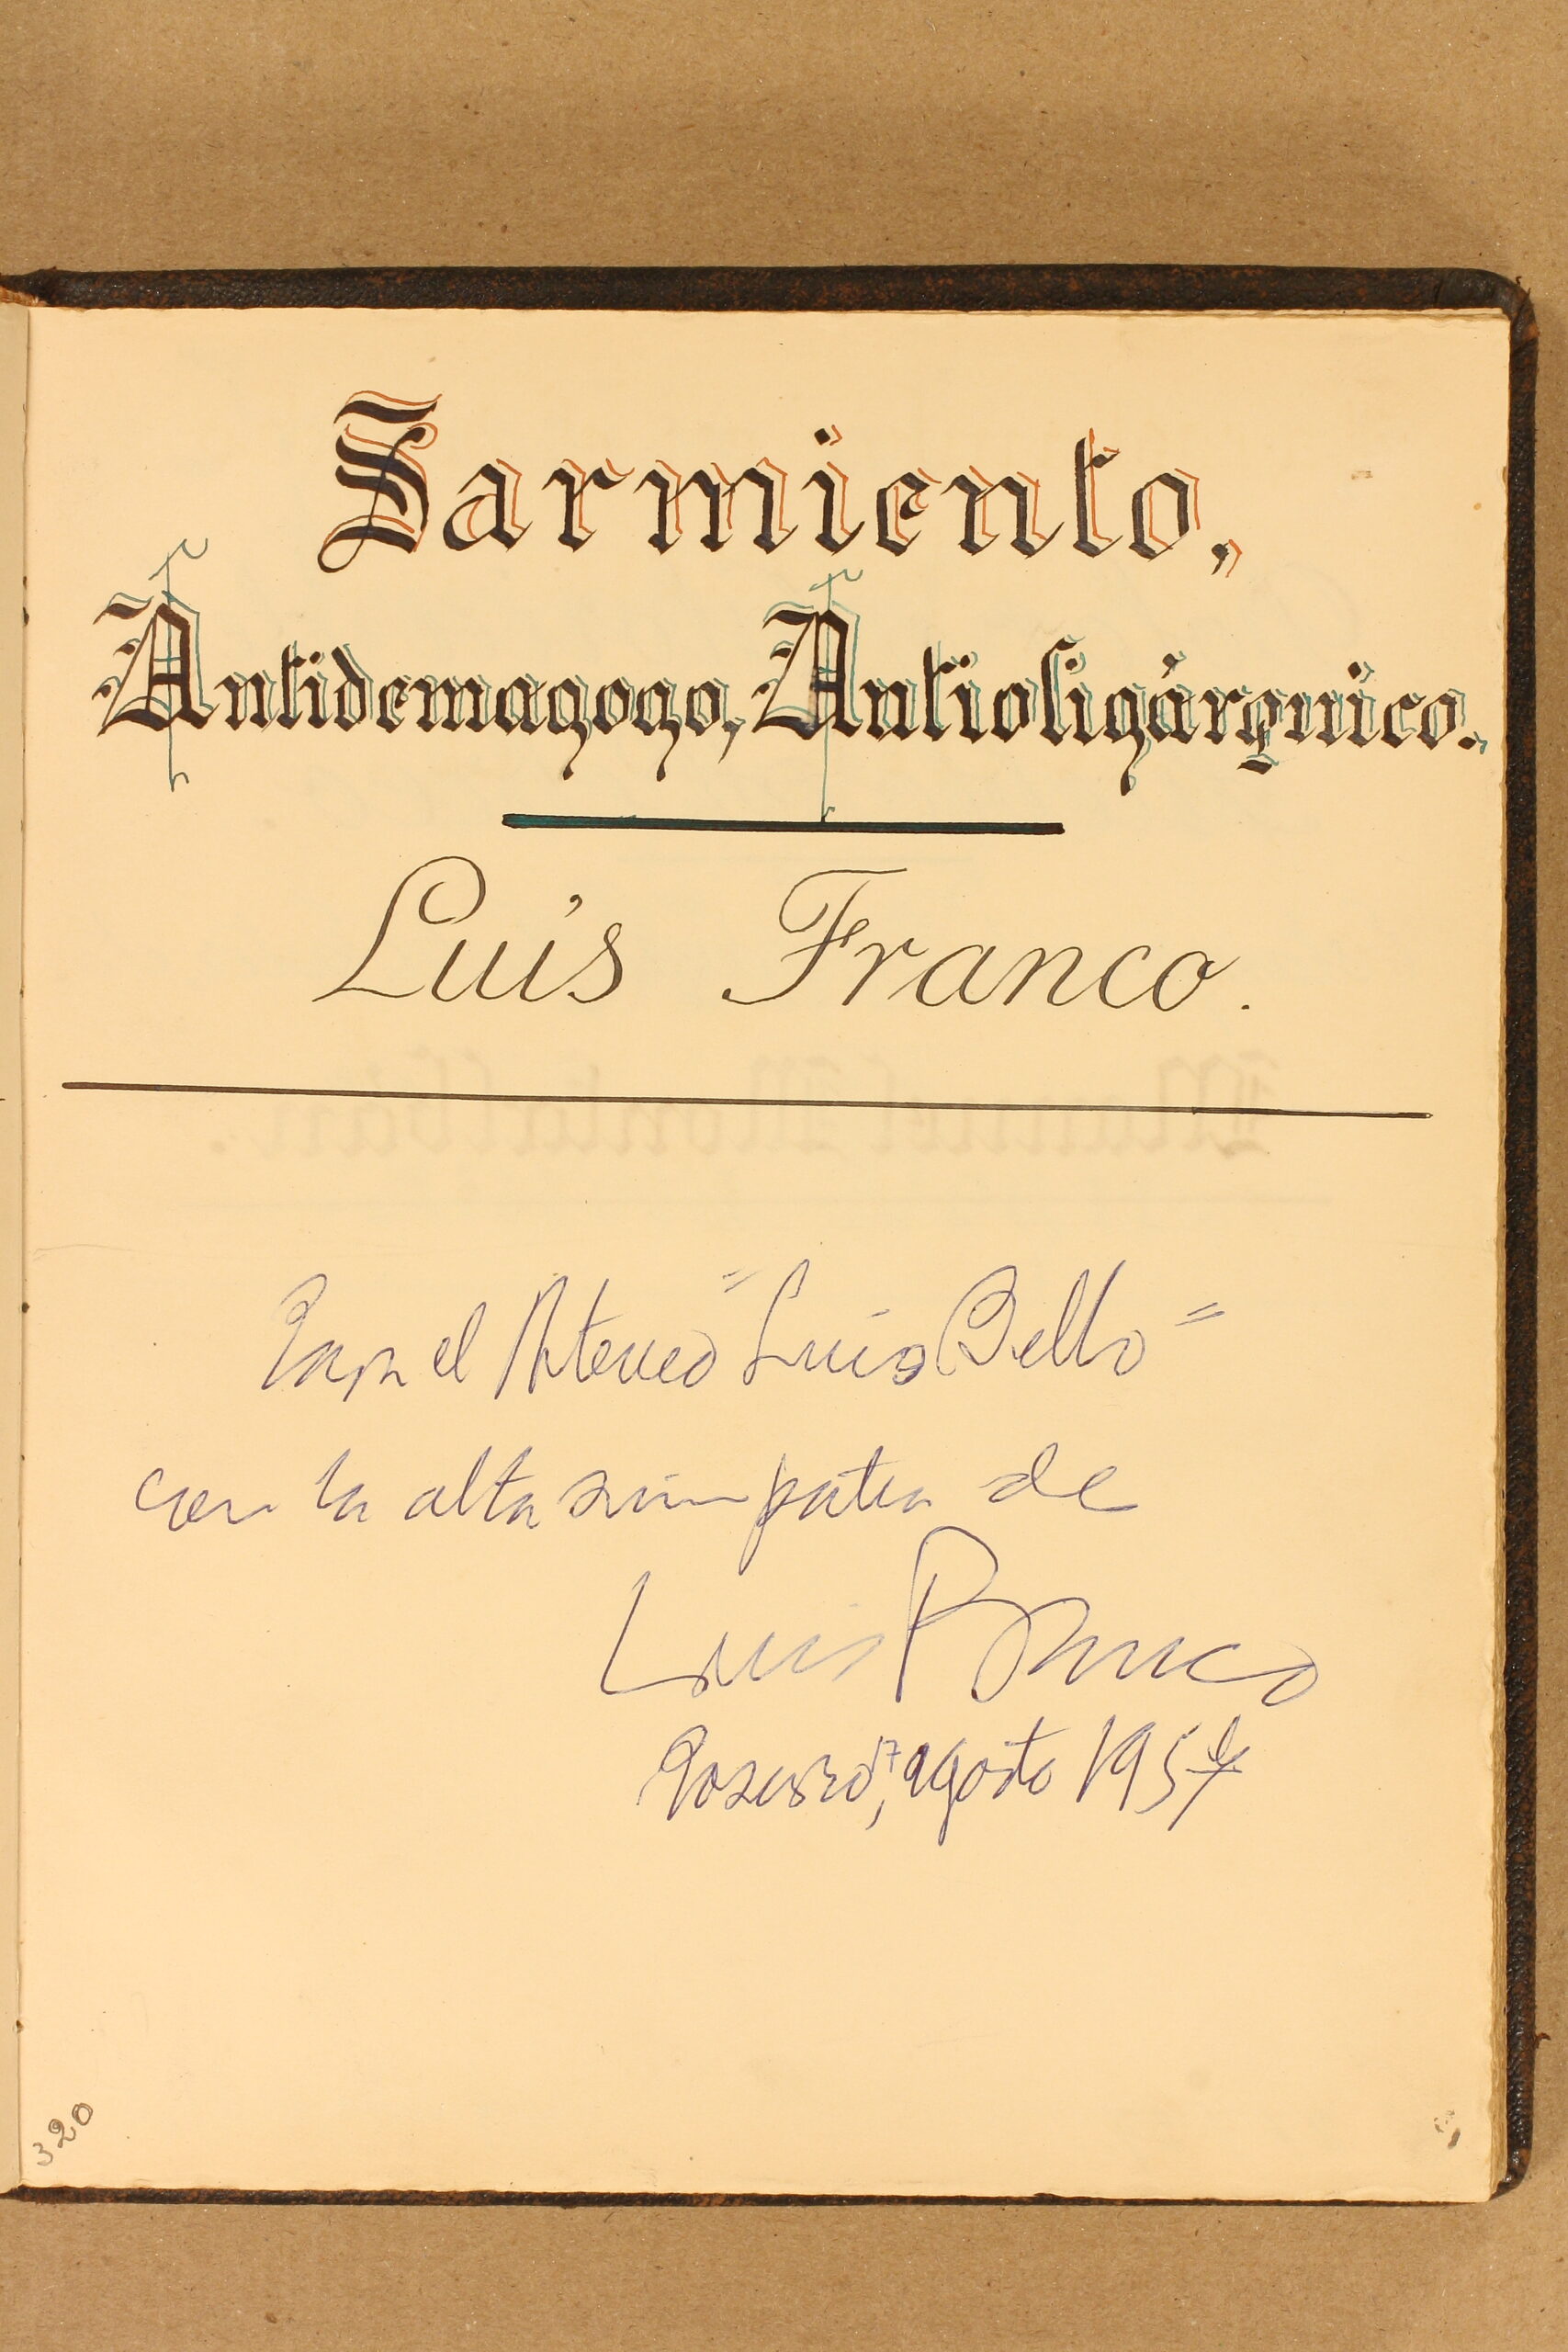 Sarmiento,
Antidemagogo, Antioligárquico.
Luis Franco.
Para el Ateneo "Luis Bello"
con la alta simpatia de
Luis Franco
Rosario, 17 agosto 195
320